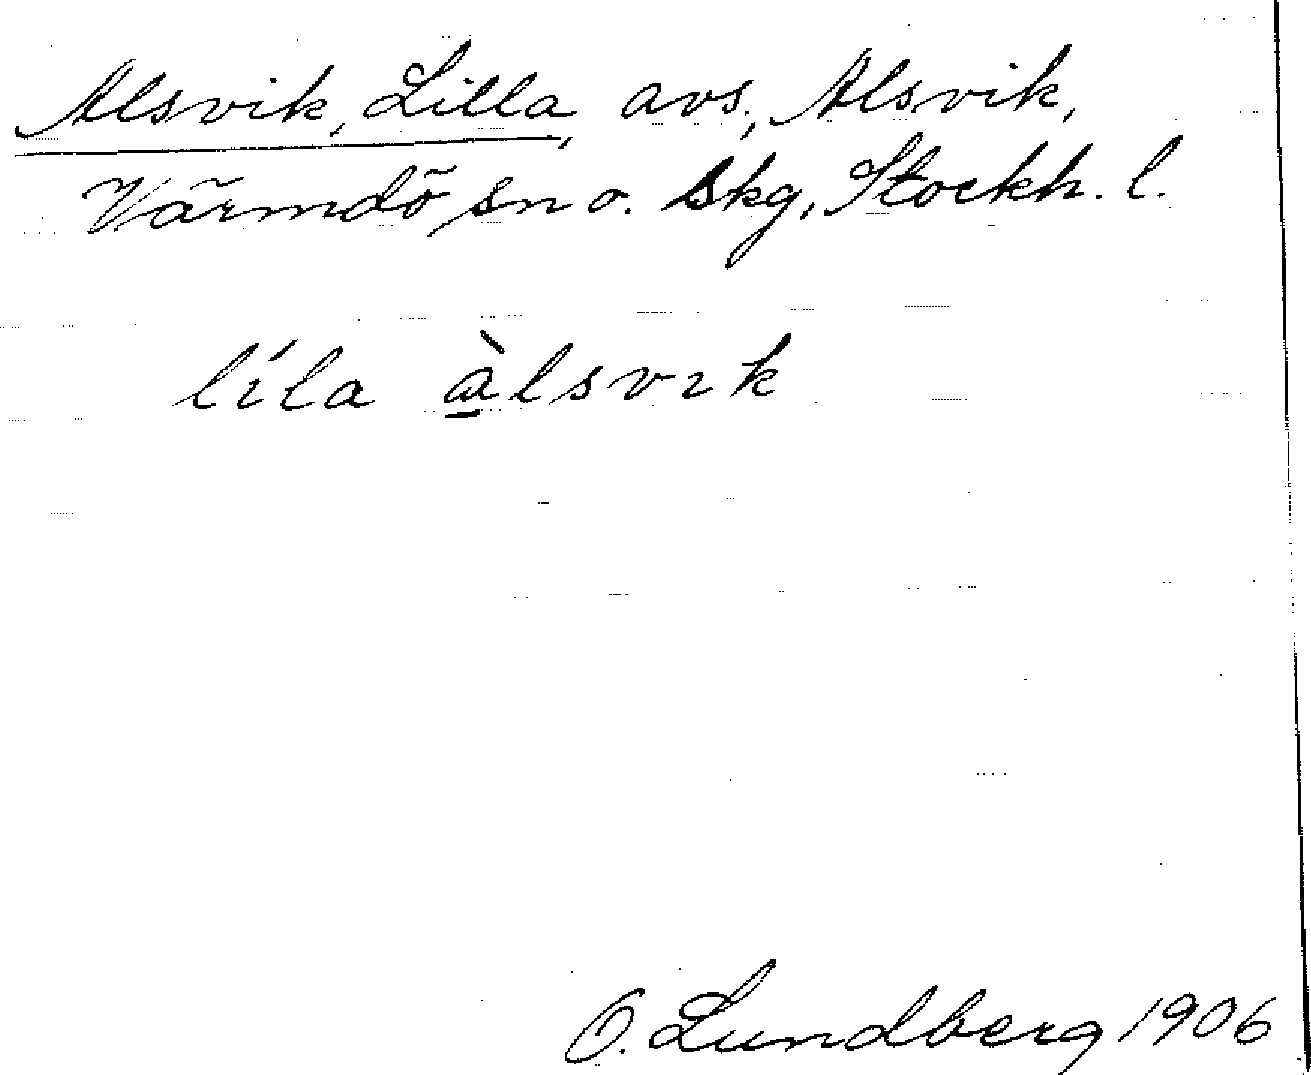 Alsvik, Lilla, avs., Alsvik,
Värmdö sn o. skg, Stockh. l.
líla àlsvɪk
O. Lundberg 1906